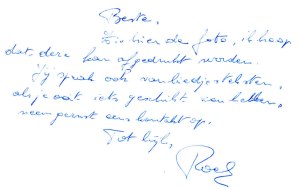 Beste,
Zie hier de foto, ik hoop
dat deze kan afgedrukt worden.
Jij sprak ook van liedjesteksten,
als je ooit iets geschikt van hebben,
neem gerust eens kontakt op.
Tot kijk,
Roel